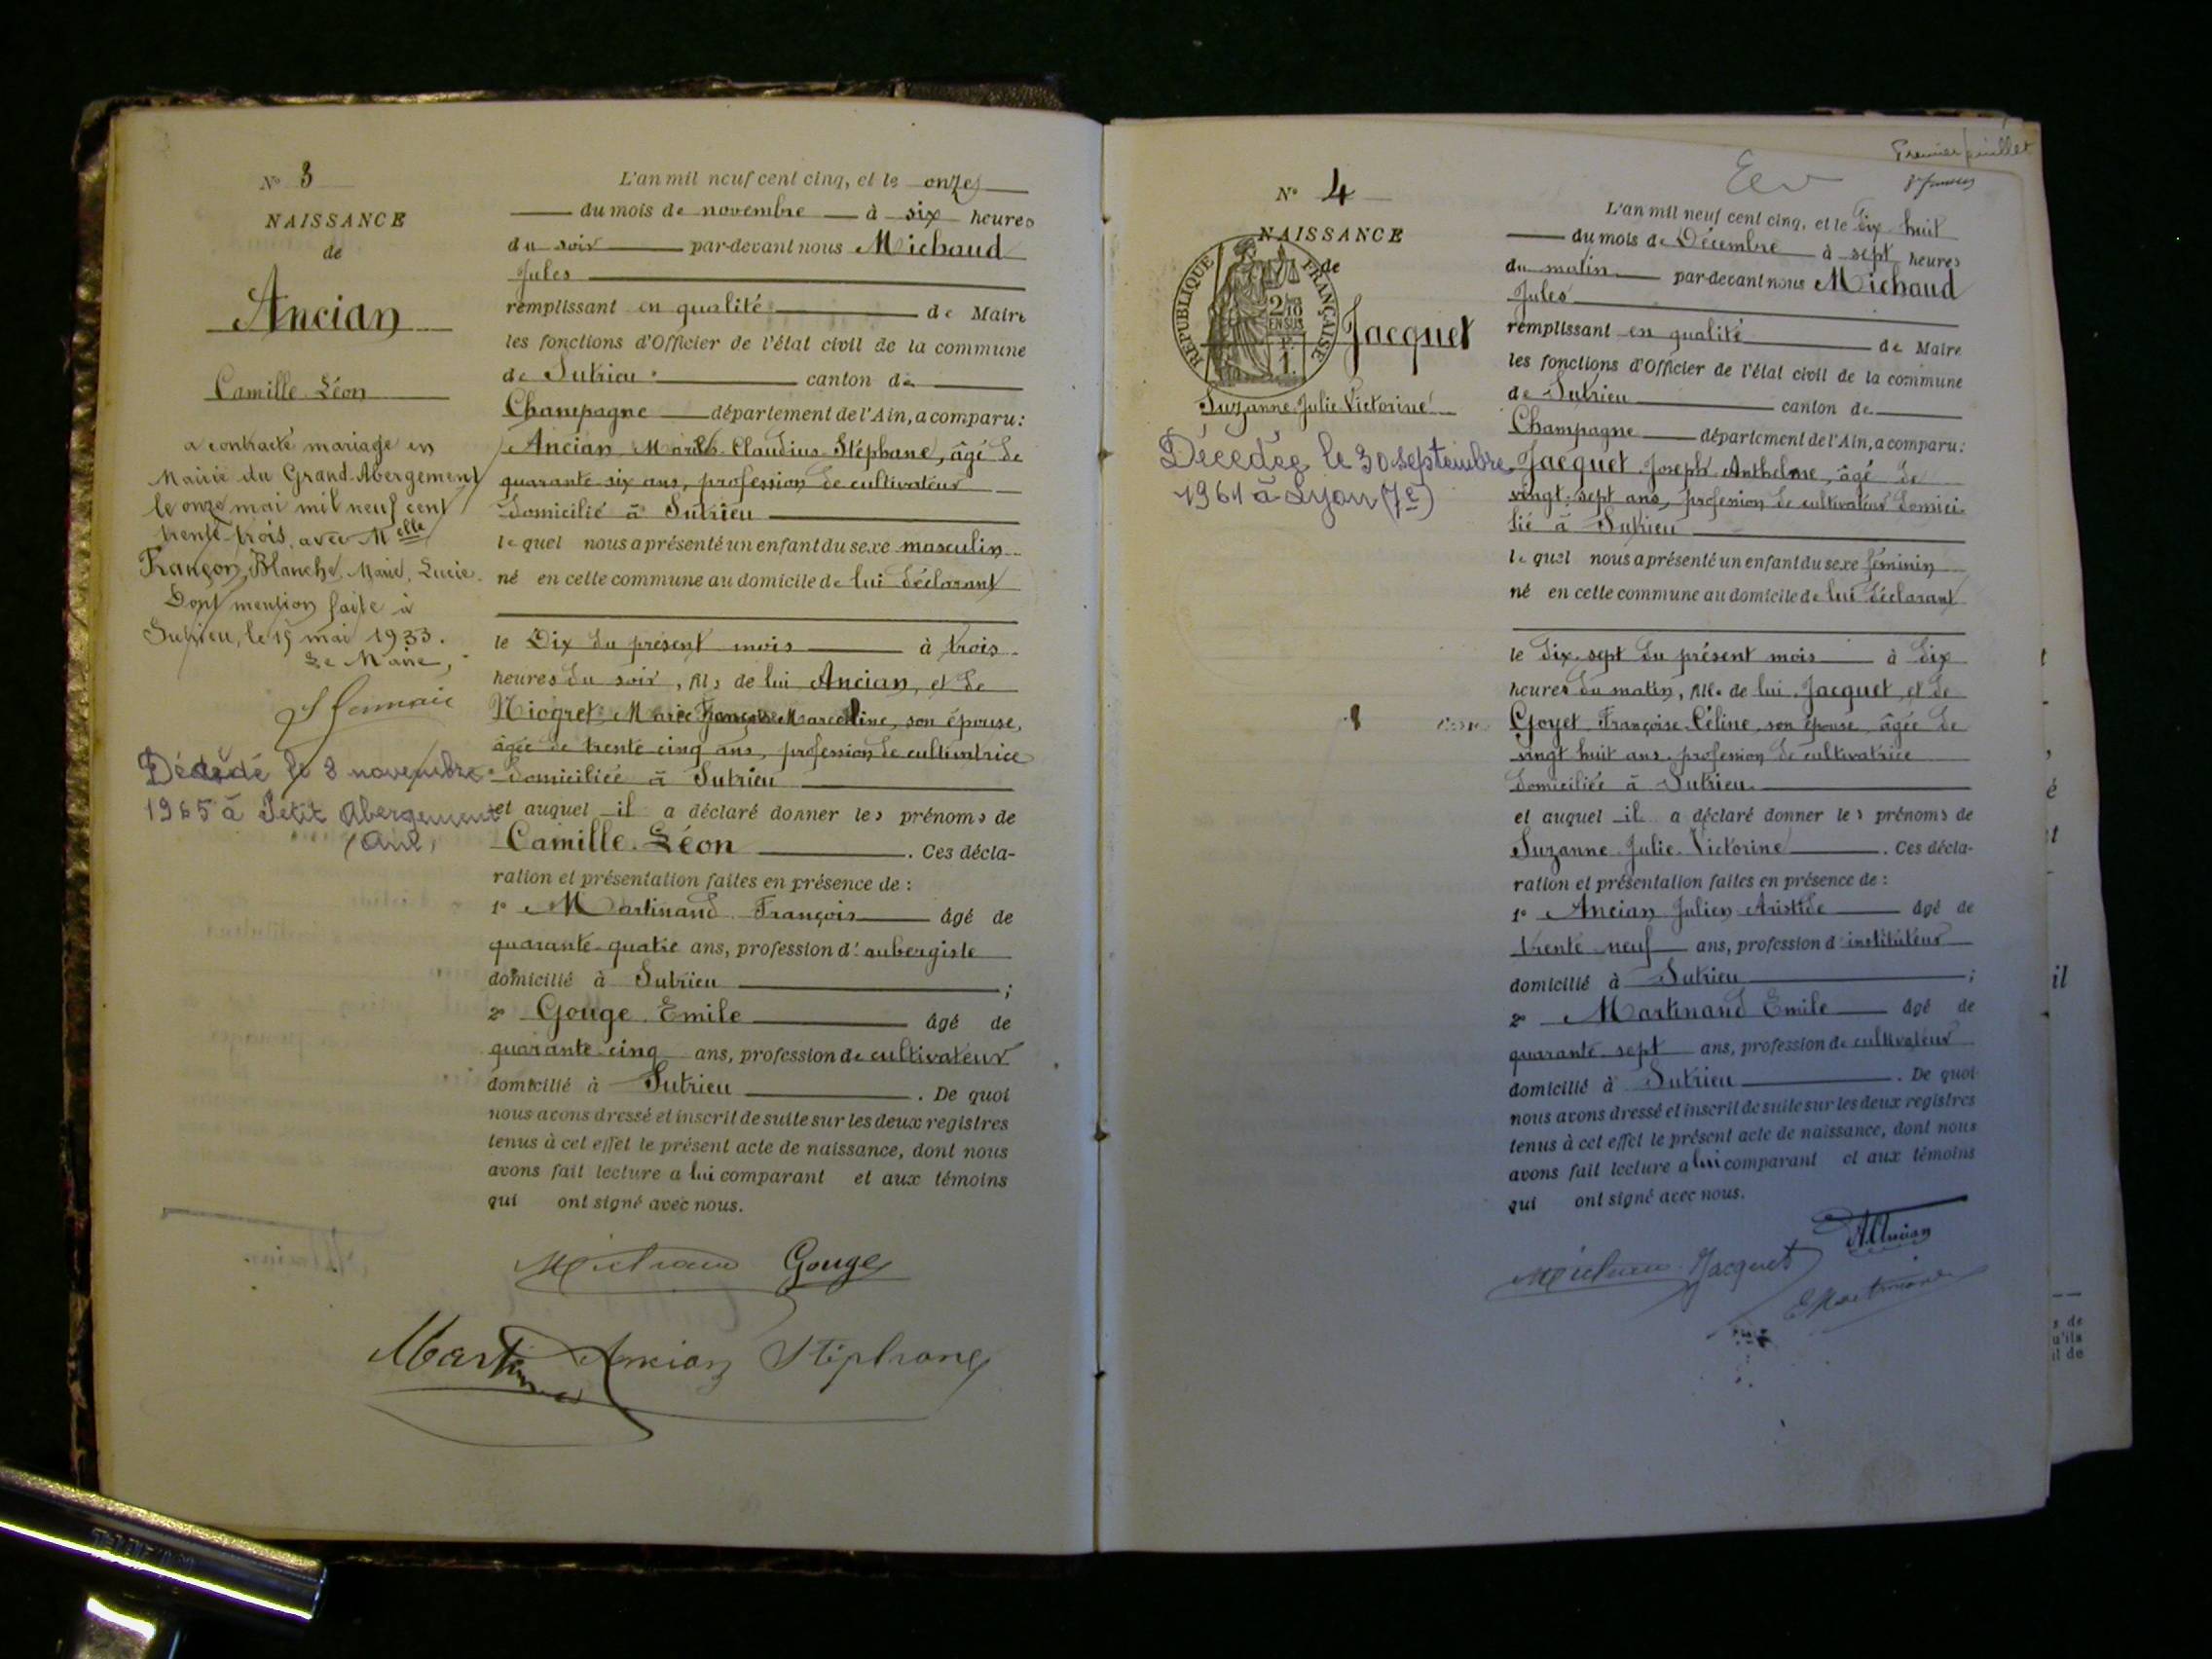 N° 3
NAISSANCE
de
Ancian
Camille Léon
a contracté mariage en
Mairie du Grand-Abergement
le onze mai mil neuf cent
trente trois, avec Melle
Françon, Blanche, Marie, Lucie.
Dont mention faite à
Sutrieu, le 15 mai 1933.
Le Maire,
Décédé le 3 novembre
1965 à Petit Abergement
(Ain)
L'an mil neuf cent cinq, et le onze
du mois de novembre à six heures
du soir par-devant nous Michaud
Jules
remplissant en qualité de Maire
les fonctions d'Officier de l'état civil de la commune
de Sutrieu canton de
Champagne département de l'Ain, a comparu:
Ancian Claudius Stéphane, âgé de
quarante six ans, profession de cultivateur
domicilié à Sutrieu
lequel nous a présenté un enfant du sexe masculin
né en cette commune au domicile de lui déclarant
le Dix du présent mois à trois
heures du soir, fils de lui Ancian, et de
Niogret Marie Marceline, son épouse,
âgée de trente cinq ans, profession de cultivatrice
domiciliée à Sutrieu
et auquel il a déclaré donner les prénoms de
Camille Léon. Ces décla-
ration et présentation faites en présence de:
1° Martinand François âgé de
quarante quatre ans, profession d'aubergiste
domicilié à Sutrieu;
2° Gouge Emile âgé de
quarante cinq ans, profession de cultivateur
domicilié à Sutrieu. De quoi
nous avons dressé et inscrit de suite sur les deux registres
tenus à cet effet le présent acte de naissance, dont nous
avons fait lecture a lui comparant et aux témoins
qui ont signé avec nous.
Michaud Gouge
Martinand Ancian Stéphane
Premier feuillet
N° 4
NAISSANCE
de
RÉPUBLIQUE FRANÇAISE
2/10
EN SUS
1
Jacquet
Suzanne Julie Victorine
Décédée le 30 septembre
1961 à Lyon (7e)
L'an mil neuf cent cinq, et le dix huit
du mois de Décembre à sept heures
du matin par-devant nous Michaud
Jules
remplissant en qualité de Maire
les fonctions d'Officier de l'état civil de la commune
de Sutrieu canton de
Champagne département de l'Ain, a comparu:
Jacquet Joseph Anthelme, âgé de
vingt-sept ans, profession de cultivateur domici-
lié à Sutrieu
lequel nous a présenté un enfant du sexe féminin
né en cette commune au domicile de lui déclarant
le dix-sept du présent mois à dix
heures du matin, fille de lui Jacquet, et de
Goyet Françoise Céline, son épouse, âgée de
vingt huit ans, profession de cultivatrice
domiciliée à Sutrieu
et auquel il a déclaré donner les prénoms de
Suzanne Julie Victorine. Ces décla-
ration et présentation faites en présence de:
1° Ancian Julien Aristide âgé de
trente neuf ans, profession d'instituteur
domicilié à Sutrieu;
2° Martinand Emile âgé de
quarante sept ans, profession de cultivateur
domicilié à Sutrieu. De quoi
nous avons dressé et inscrit de suite sur les deux registres
tenus à cet effet le présent acte de naissance, dont nous
avons fait lecture a lui comparant et aux témoins
qui ont signé avec nous.
A. Ancian
Michaud Jacquet
E Martinand